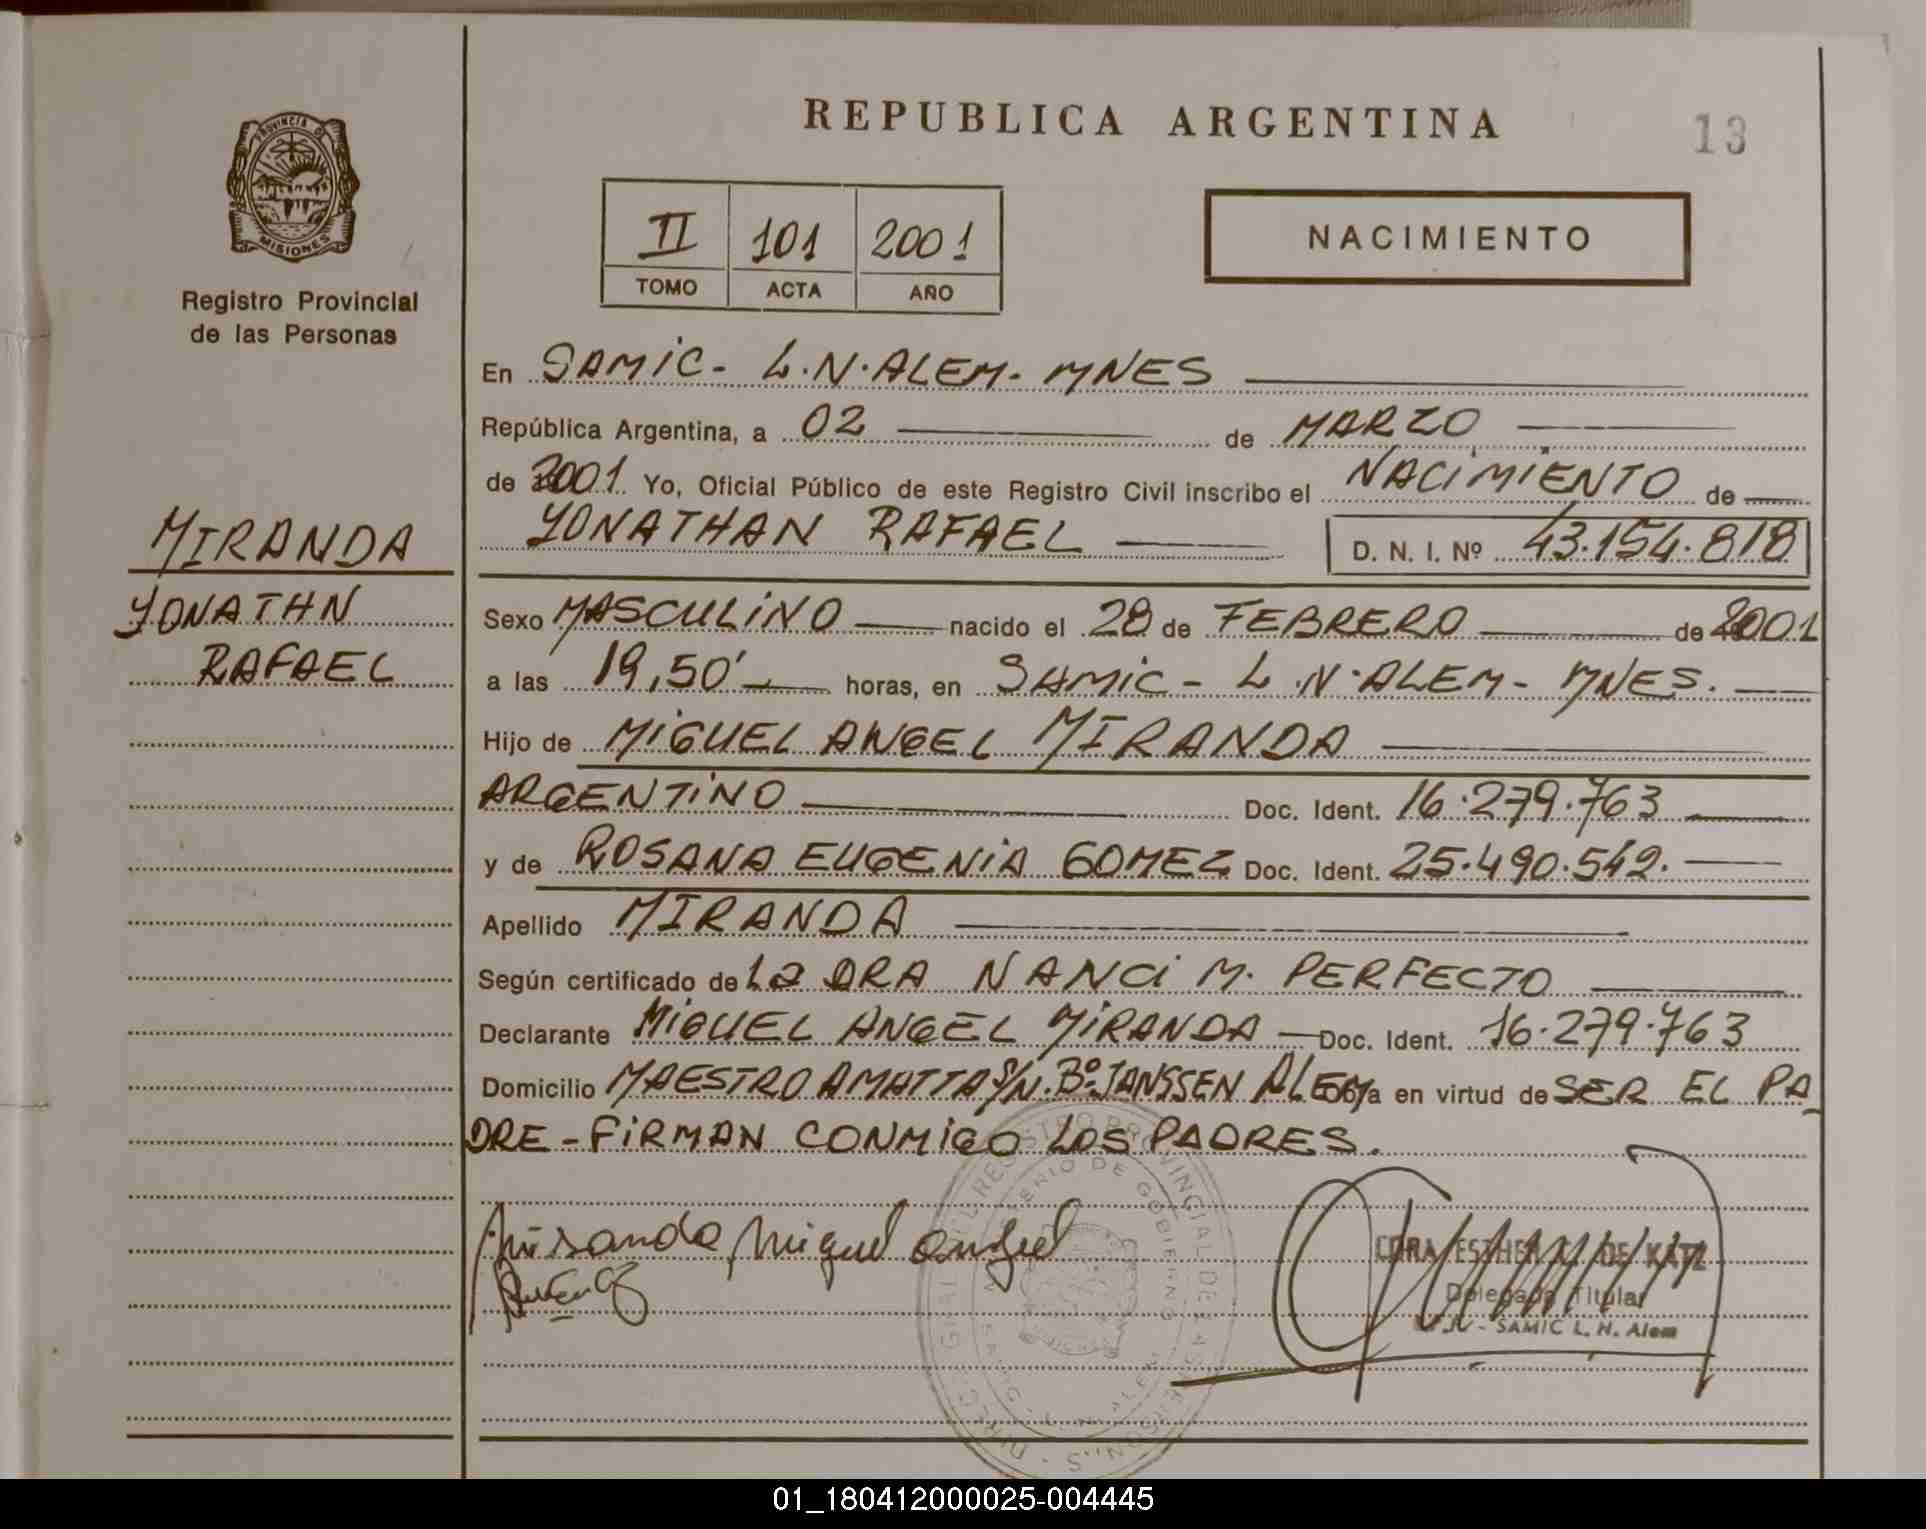 REPUBLICA ARGENTINA
13
PROVINCIA DE
MISIONES
Registro Provincial
de las Personas
II 101 2001
TOMO ACTA AÑO
NACIMIENTO
En SAMIC- L.N.ALEM- MNES
República Argentina, a 02 de MARZO
de 2001 Yo, Oficial Público de este Registro Civil inscribo el NACIMIENTO de
YONATHAN RAFAEL D. N. I. Nº 43.154.818
MIRANDA
YONATHN
RAFAEL
Sexo MASCULINO nacido el 28 de FEBRERO de 2001
a las 19,50' horas, en SAMIC- L.N.ALEM- MNES.
Hijo de MIGUEL ANGEL MIRANDA
ARGENTINO Doc. Ident. 16.279.763
y de ROSANA EUGENIA GOMEZ Doc. Ident. 25.490.549.
Apellido MIRANDA
Según certificado de La DRA NANCI M. PERFECTO
Declarante MIGUEL ANGEL MIRANDA Doc. Ident. 16.279.763
Domicilio MAESTRO AMATTA S/N. Bº JANSSEN ALEM en virtud de SER EL PA-
DRE - FIRMAN CONMIGO LOS PADRES.
Miranda Miguel angel
ESTHER DE KATZ
Delegada Titular
SAMIC L. N. Alem
REGISTRO PROVINCIAL DE LAS PERSONAS
MINISTERIO DE GOBIERNO
01_180412000025-004445